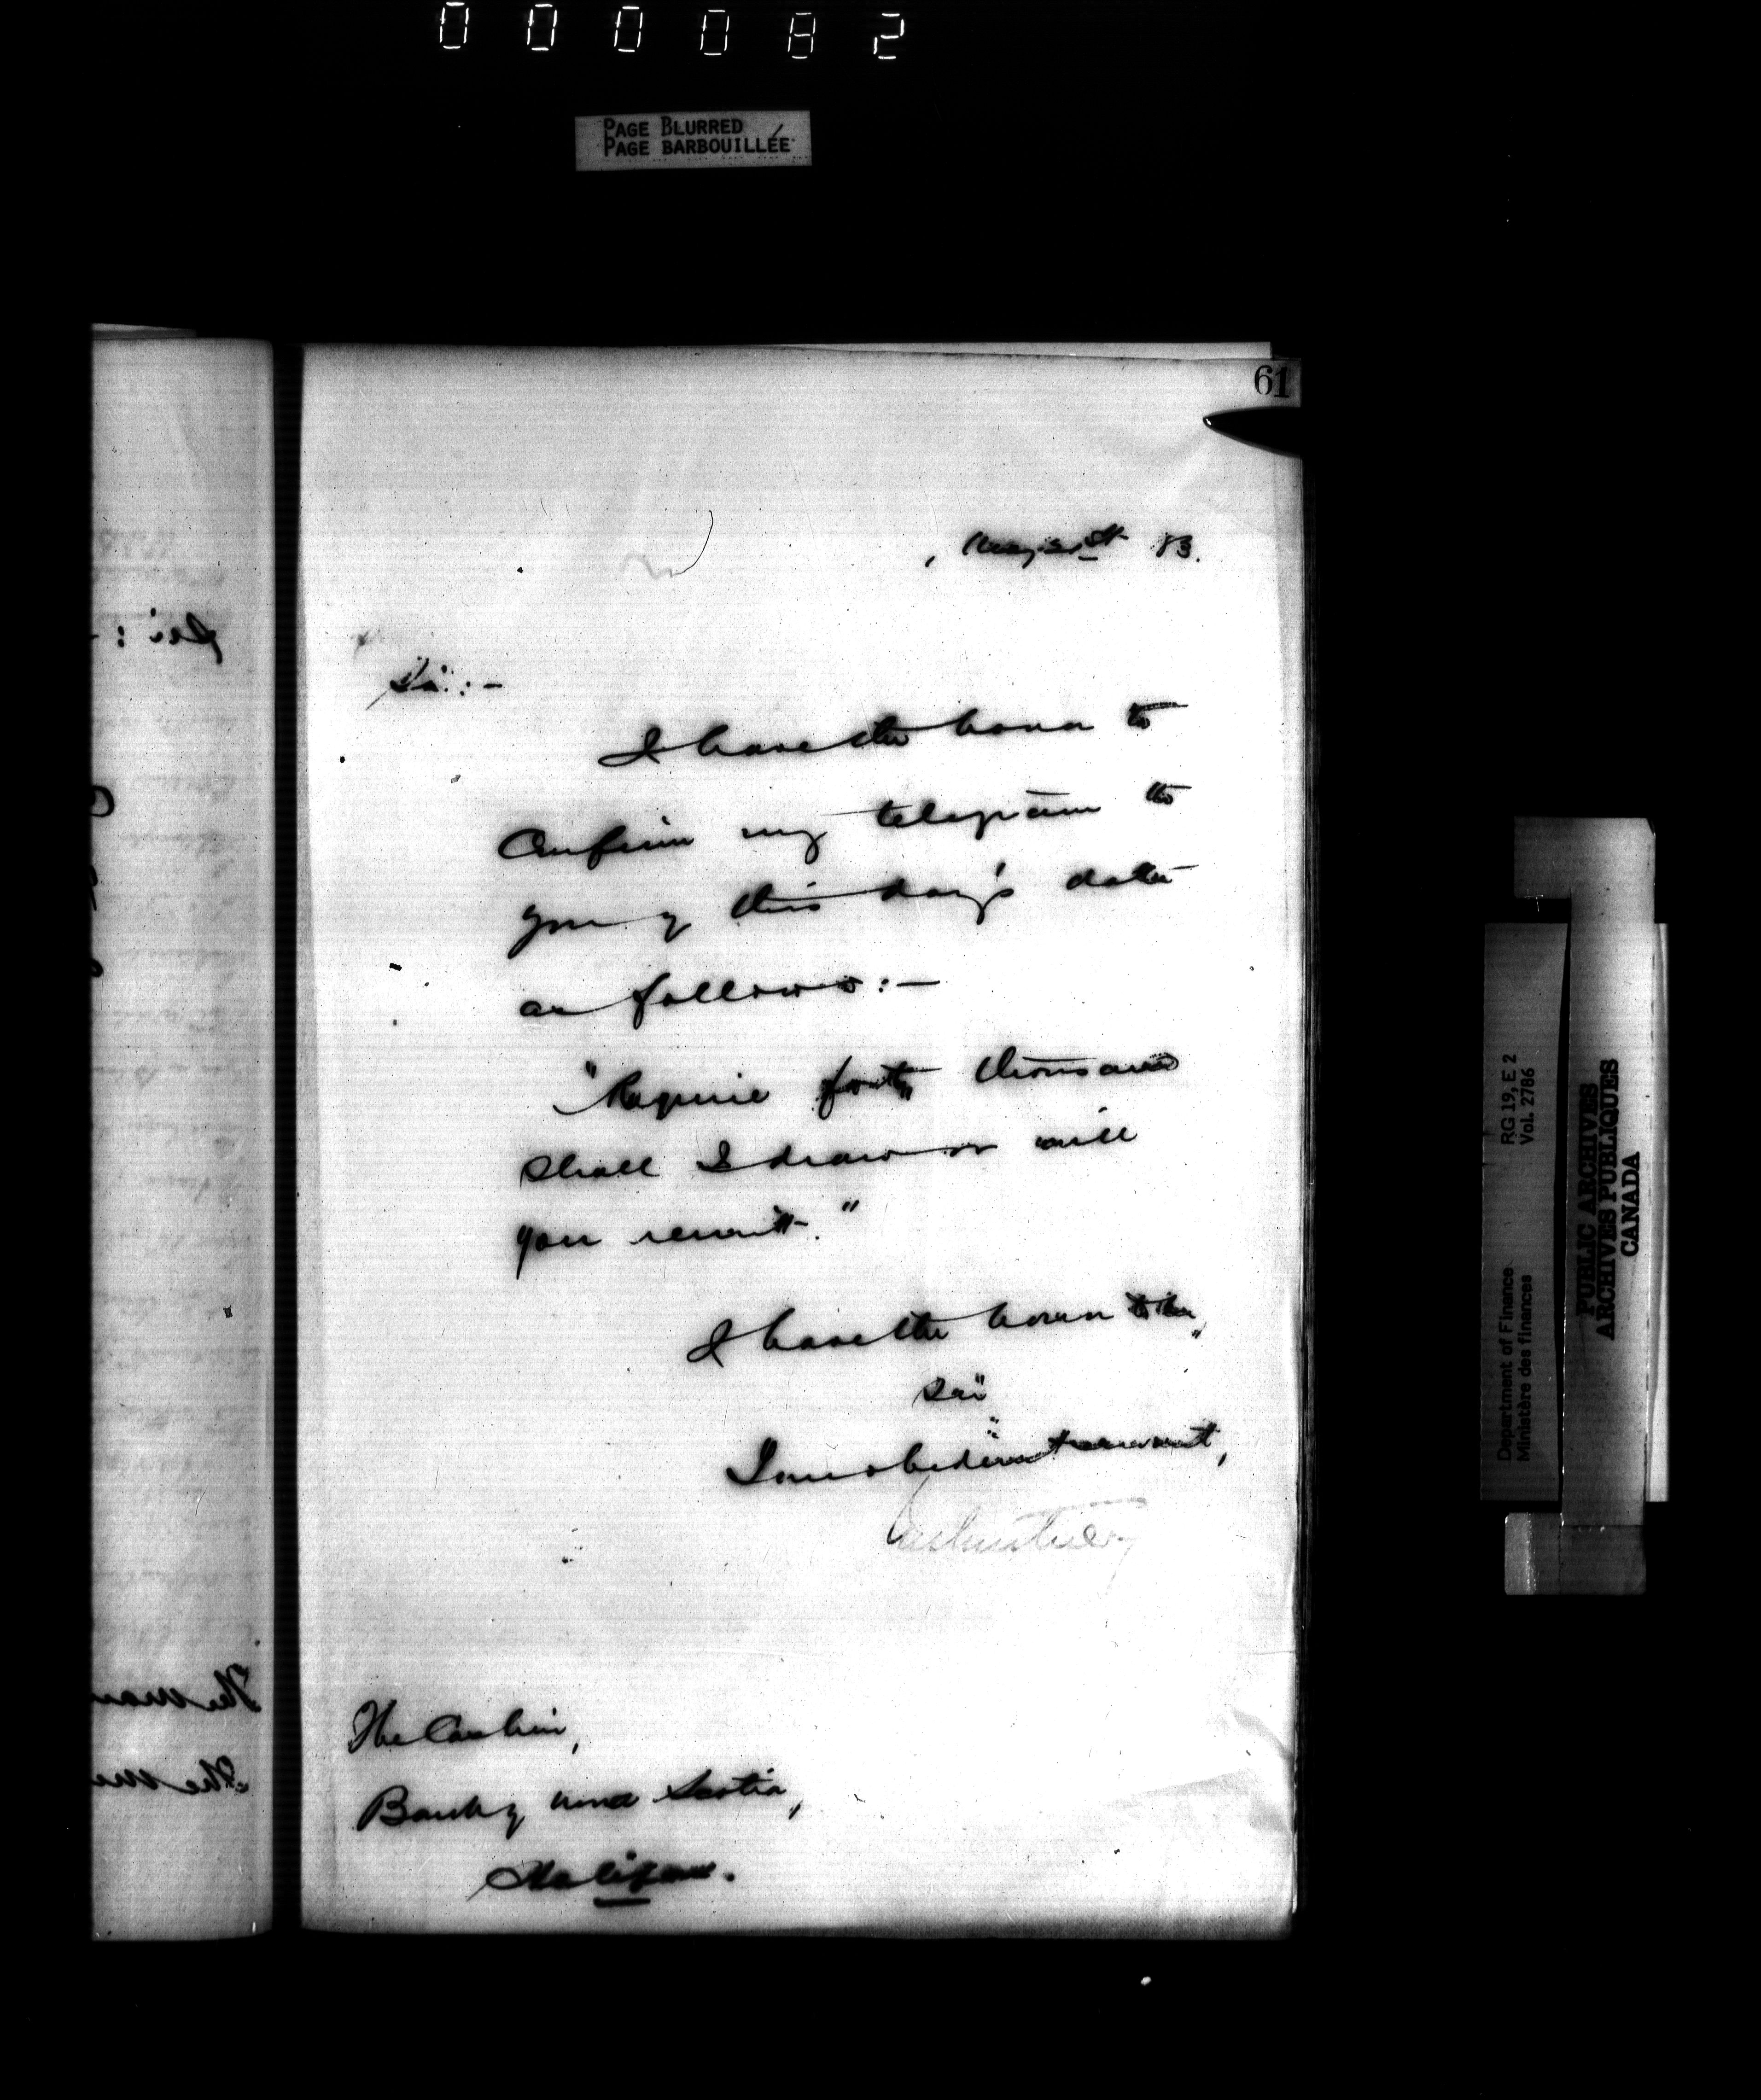 000082
PAGE BLURRED
PAGE BARBOUILLÉE
61
83.
Sir:-
I have the honor to
Confirm my telegram to
you of this day's date
as follows:-
"Require forty thousand
shall I draw or will
you remit."
I have the honor to be,
Sir
Your obedient servant,
The Cashier,
Bank of Nova Scotia,
Halifax.
Sir:-
Department of Finance RG 19, E 2
Ministère des finances Vol. 2786
PUBLIC ARCHIVES
ARCHIVES PUBLIQUES
CANADA